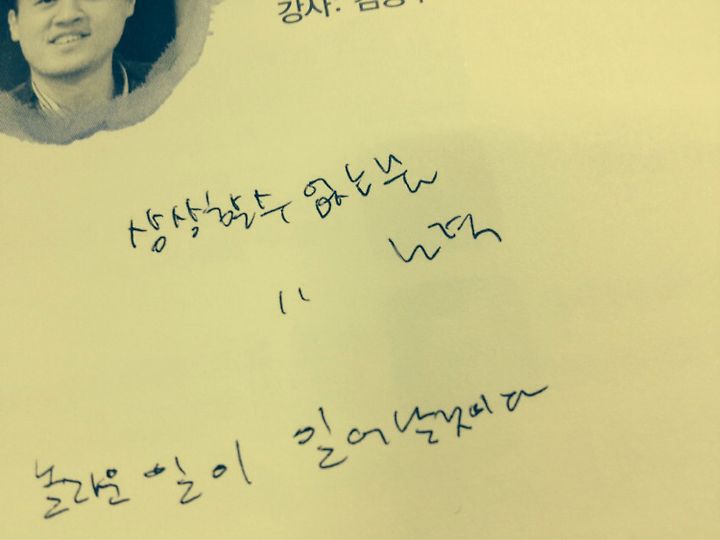 강사:
상상할수 없는
〃 노력
놀라운 일이 일어날것이다